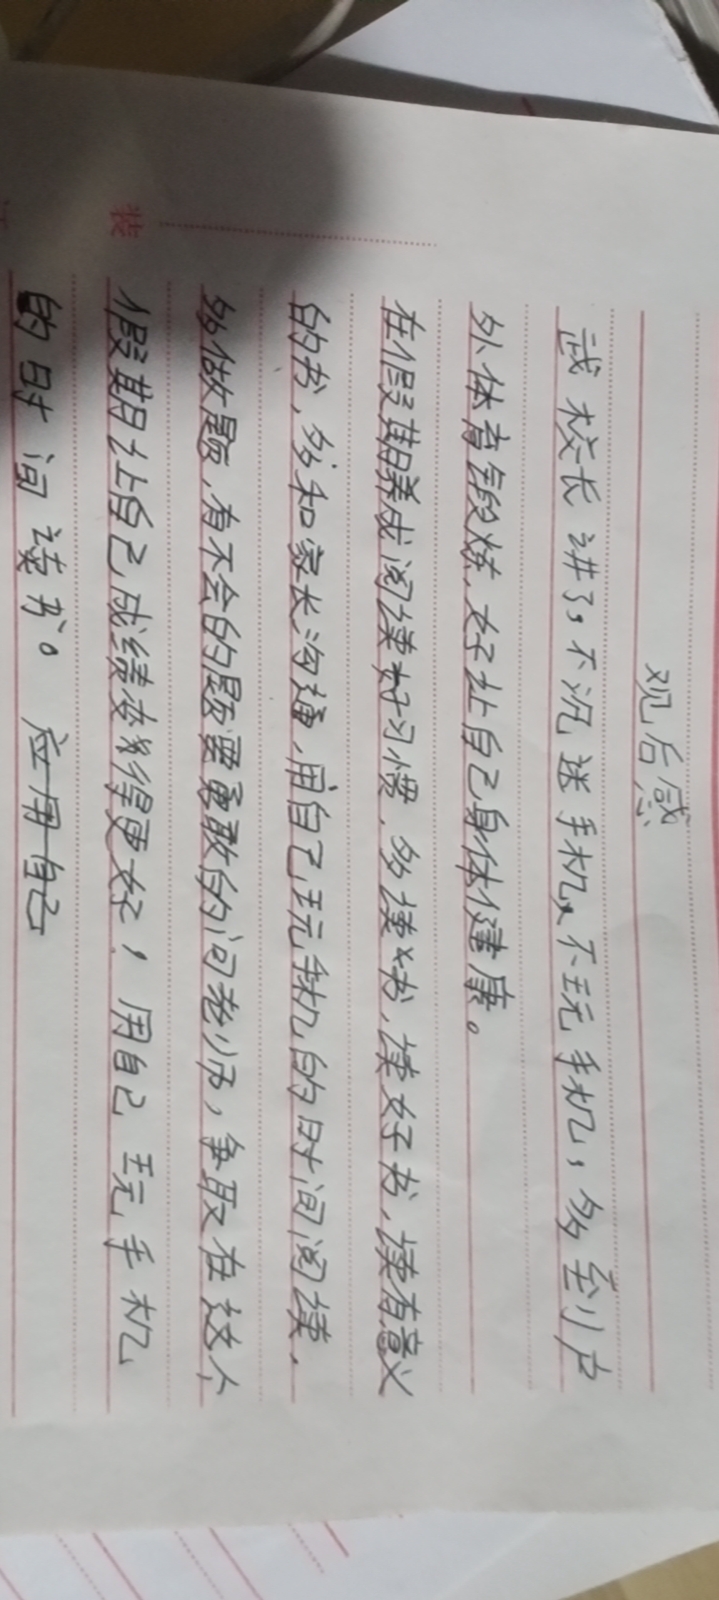 观后感
武校长讲了,不沉迷手机,不玩手机,多到户
外体育锻炼,好让自己身体健康。
在假期养成阅读好习惯,多读书,读好书,读有意义
的书,多和家长沟通,用自己玩手机的时间阅读,
多做题,有不会的题要勇敢的问老师,争取在这个
假期让自己成绩变得更好!用自己玩手机
的时间读书。应用自己
装